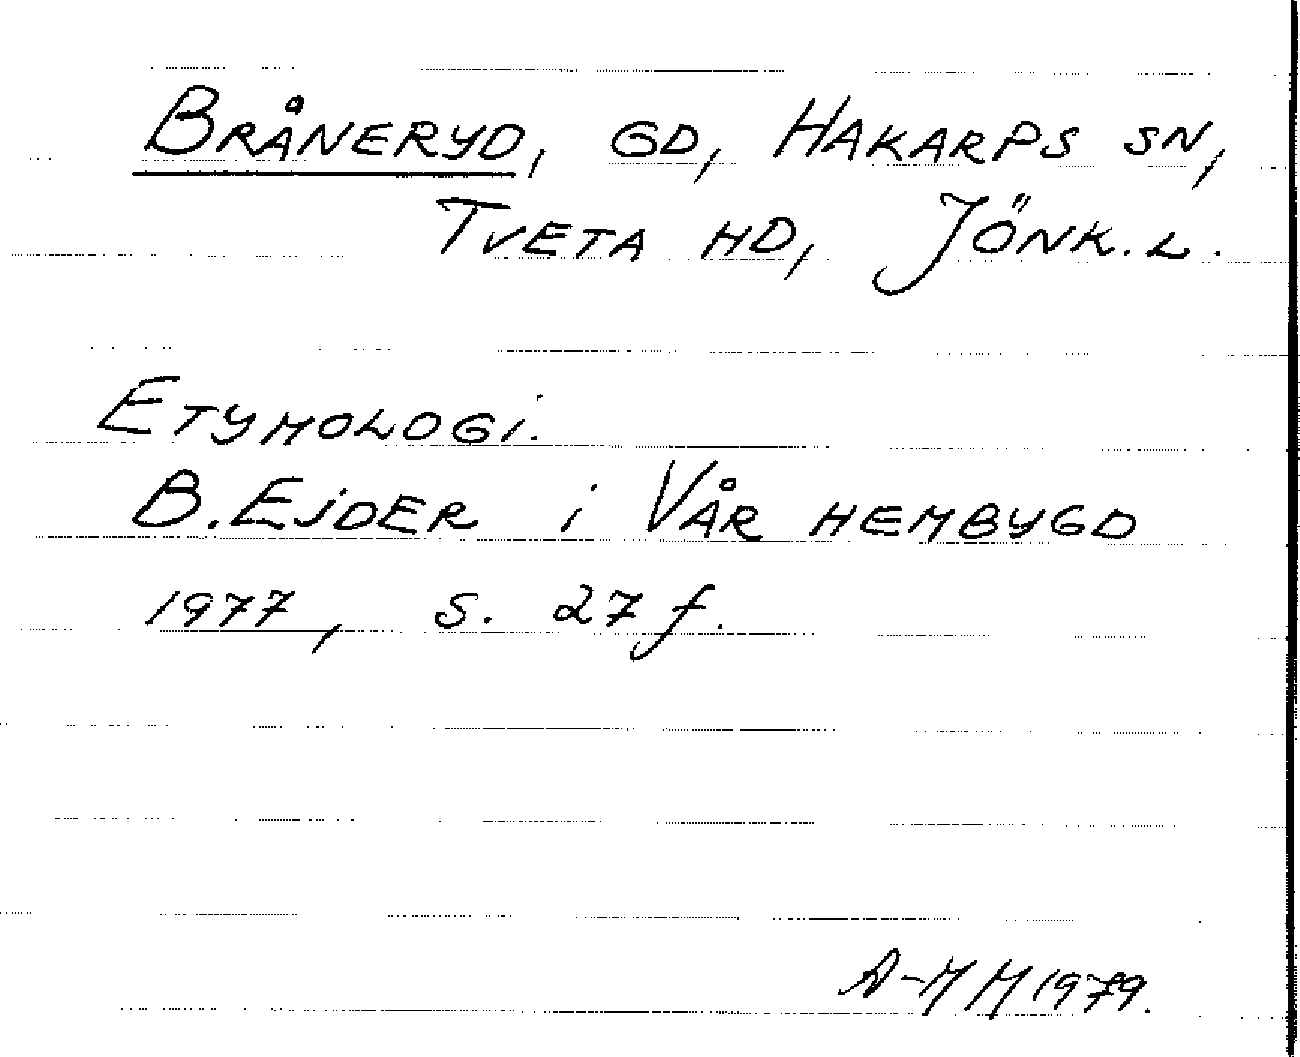 BRÅNERYD, GD, HAKARPS SN,
TVETA HD, JÖNK. L.
ETYMOLOGI.
B. EJDER i VÅR HEMBYGD
1977, S. 27 f.
A-MM 1979.